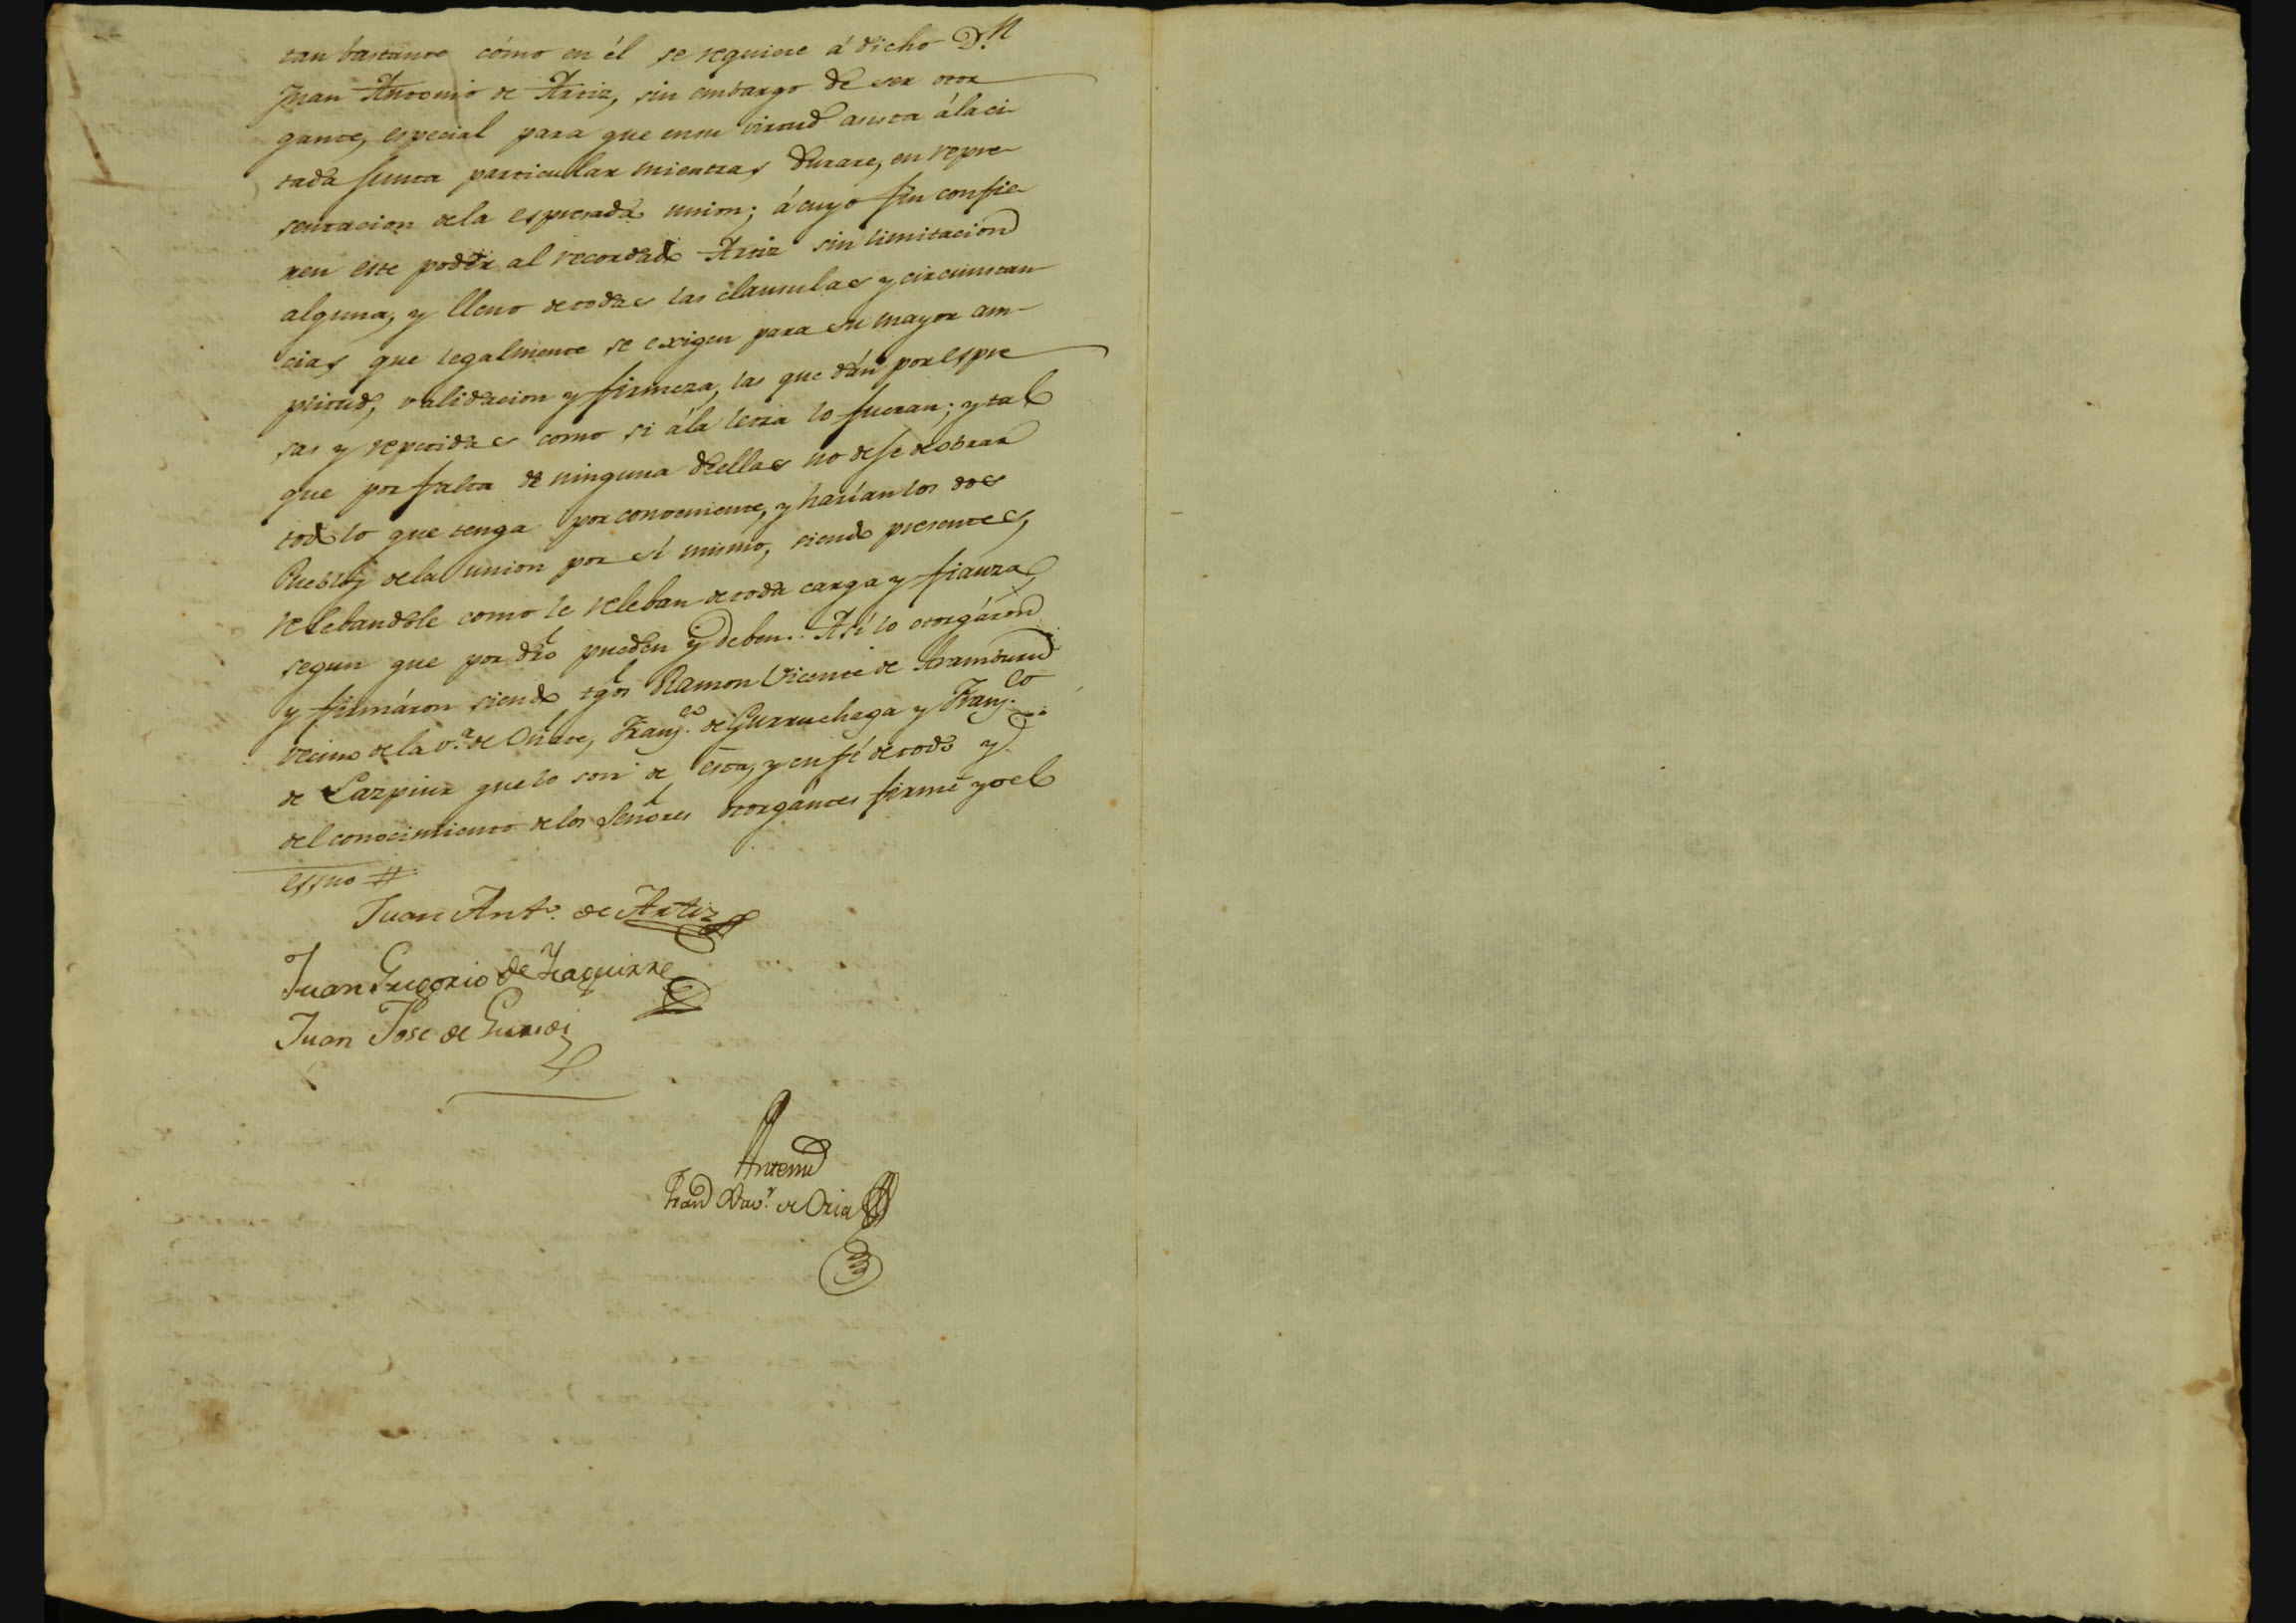 tan bastante cómo en él se requiere á dicho D.n
Juan Antonio de Artiz, sin embargo de ser otor
gante, especial para que en su virtud asista á la ci-
tada Junta particular mientras durare, en repre-
sentacion de la espresada union; á cuyo fin confie-
ren este poder al recordado Artiz sin limitacion
alguna, y lleno de todas las clausulas y circunstan-
cias que legalmente se exigen para su mayor am-
plitud, validacion y firmeza, las que dán por espre
sas y repetidas como si á la letra lo fueran; y tal
que por falta de ninguna de ellas no dese de obrar
todo lo que tenga por conveniente, y harían los dos
Pueblos de la union por sí mismo, siendo presentes,
relebandole como le releban de toda carga y fianza,
segun que por dro pueden y deben. Así lo otorgáron
y firmáron siendo tgos Ramon Vicente de Aramburu
vecino de la v.a de Oñate, Franj.co de Gurruchaga y Franj.co
de Lazpiur que lo son de esta, y en fé de todo y
del conocimiento de los Señores otorgántes firmé yo el
essno #
Juan Ant.o de Artiz
Juan Gregorio de Yzaguirre
Juan Jose de Guridi
Antemi
Fran Xav.r de Oria